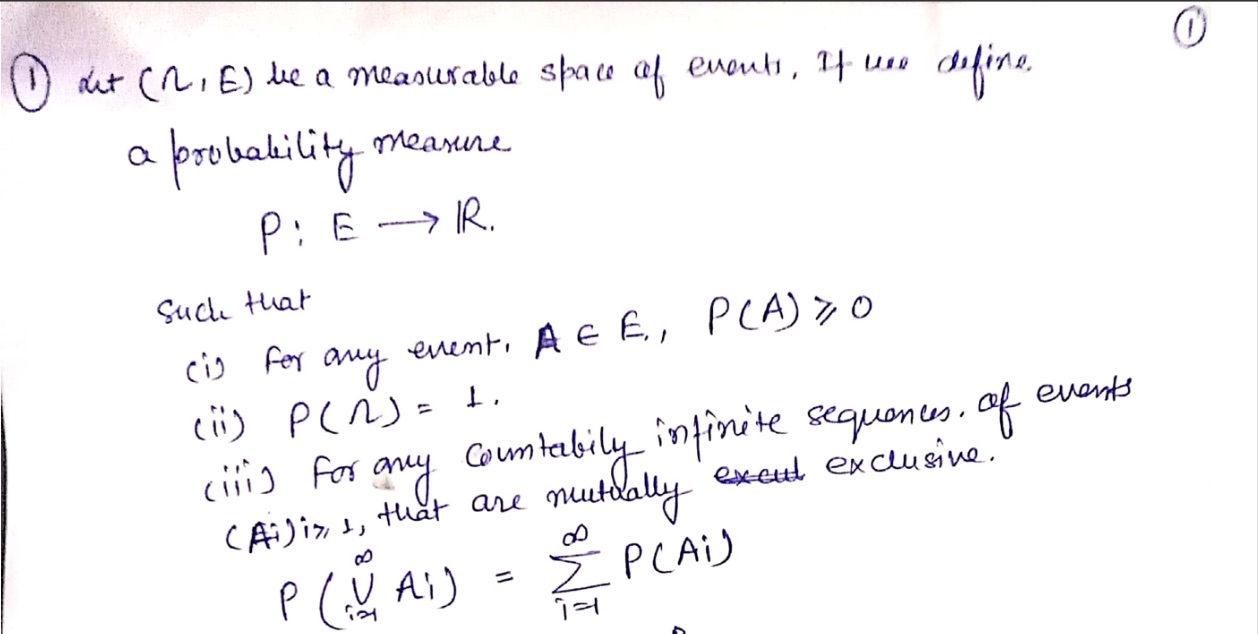 ①
① Let (Ω, E) be a measurable space of events, If we define.
a probability measure
P: E ⟶ ℝ.
Such that
(i) for any event, A ∈ E, P(A) ⩾ 0
(ii) P(Ω) = 1.
(iii) For any Countabily infinite sequences. of events
(Ai)i⩾1, that are mutually exclusive.
P(∞∪i=1 Ai) = ∞∑i=1 P(Ai)